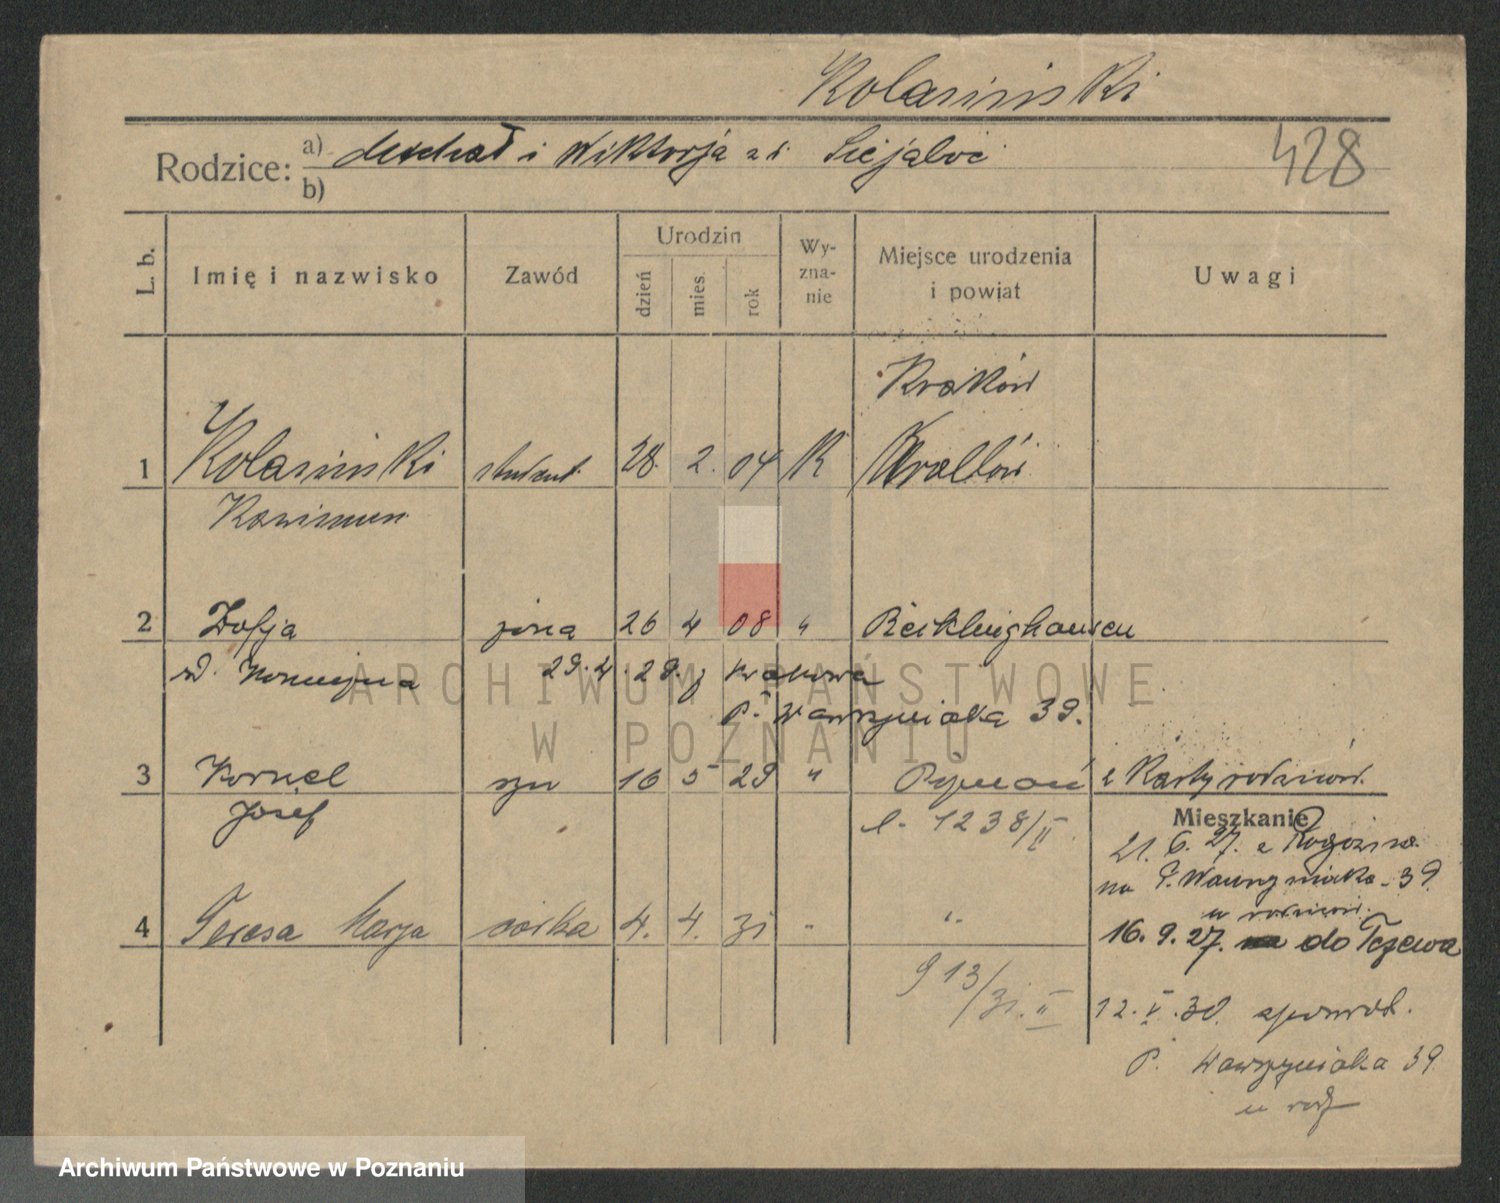 Kolasiński
Rodzice: a) Michał i Wiktorja z d.
b)
428
L. b. Imię i nazwisko Zawód Urodzin dzień mies. rok Wy-zna-nie Miejsce urodzenia i powiat Uwagi
Kraków
1 Kolasiński student 28. 2. 04 K
Kazimierz
2 Zofja żona 26 4 08 " Recklinghausen
29.4.29. z Krakowa
P. Wawrzyniaka 39.
3 Kornel syn 16 5 29 " Poznań z Karty rodziców.
Józef
l. 1238/II
Mieszkanie
21. 6. 27. z Rogoźna
na P. Wawrzyniaka 39
u rodziców.
4 Teresa Marja córka 4. 4. 31 " "
16. 9. 27. do Tczewa
913/31. II
12. V. 30. zpowrot.
P. Wawrzyniaka 39
u rodz
ARCHIWUM PAŃSTWOWE
W POZNANIU
Archiwum Państwowe w Poznaniu